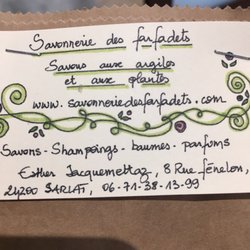 Savonnerie des farfadets
Savons aux argiles
et aux plantes
www.savonneriedesfarfadets.com
Savons - Shampoings - baumes - parfums
Esther Jacquemettaz, 8 Rue Fénelon,
24200 SARLAT, 06-71-38-13-99